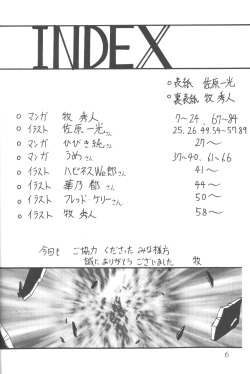 INDEX
○表紙 佐原一光
○裏表紙 牧秀人
○マンガ 牧 秀人 7～24、67～84
○イラスト 佐原一光さん 25,26,49,54~57,89
○マンガ ひびき純さん 27～
○マンガ うめさん 37~40、61~66
○イラスト ハピネスWe郎さん 41～
○イラスト 華乃 郁さん 44～
○イラスト フレッド・ケリーさん 50～
○イラスト 牧 秀人 58～
今回も ご協力くださった みな様方
誠にありがとうございました。 牧
6